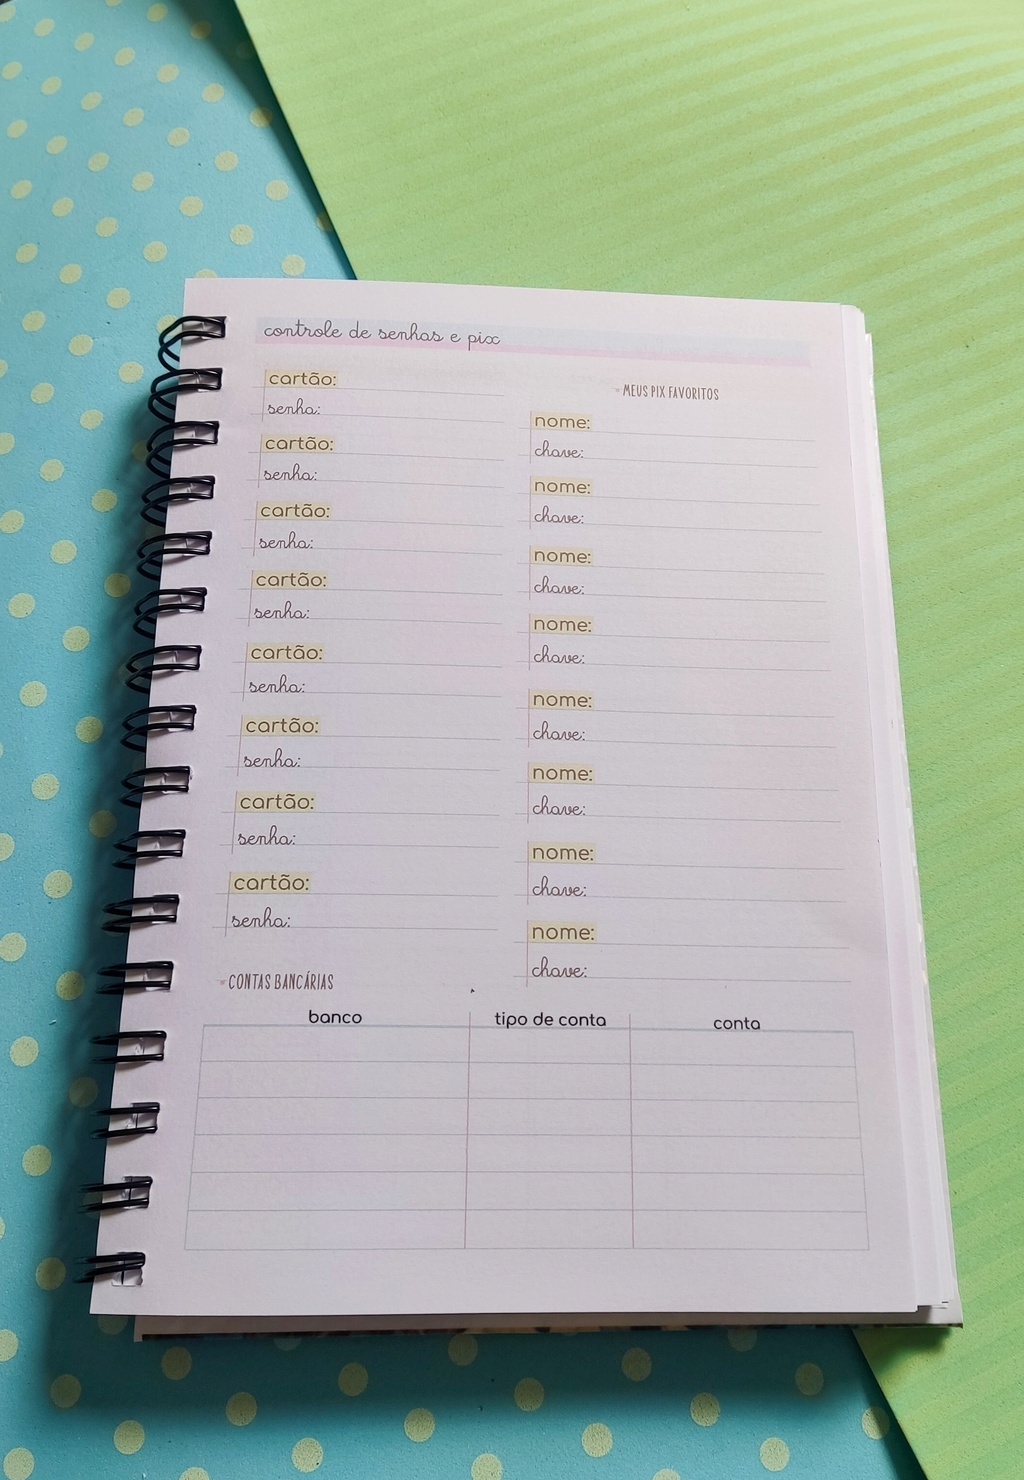 controle de senhas e pix
cartão:
senha:
cartão:
senha:
cartão:
senha:
cartão:
senha:
cartão:
senha:
cartão:
senha:
cartão:
senha:
cartão:
senha:
MEUS PIX FAVORITOS
nome:
chave:
nome:
chave:
nome:
chave:
nome:
chave:
nome:
chave:
nome:
chave:
nome:
chave:
nome:
chave:
CONTAS BANCÁRIAS
banco tipo de conta conta